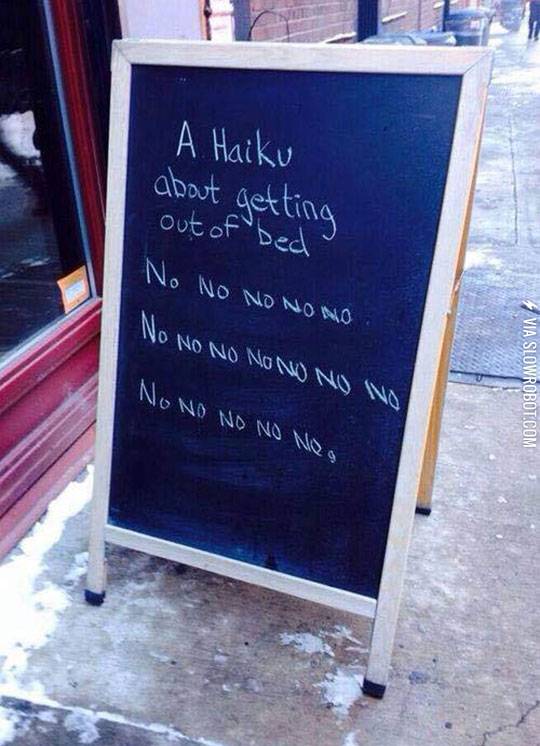 A Haiku
about getting
out of bed
No No No No No
No No No No No No No
No No No No No.
VIA SLOWROBOT.COM